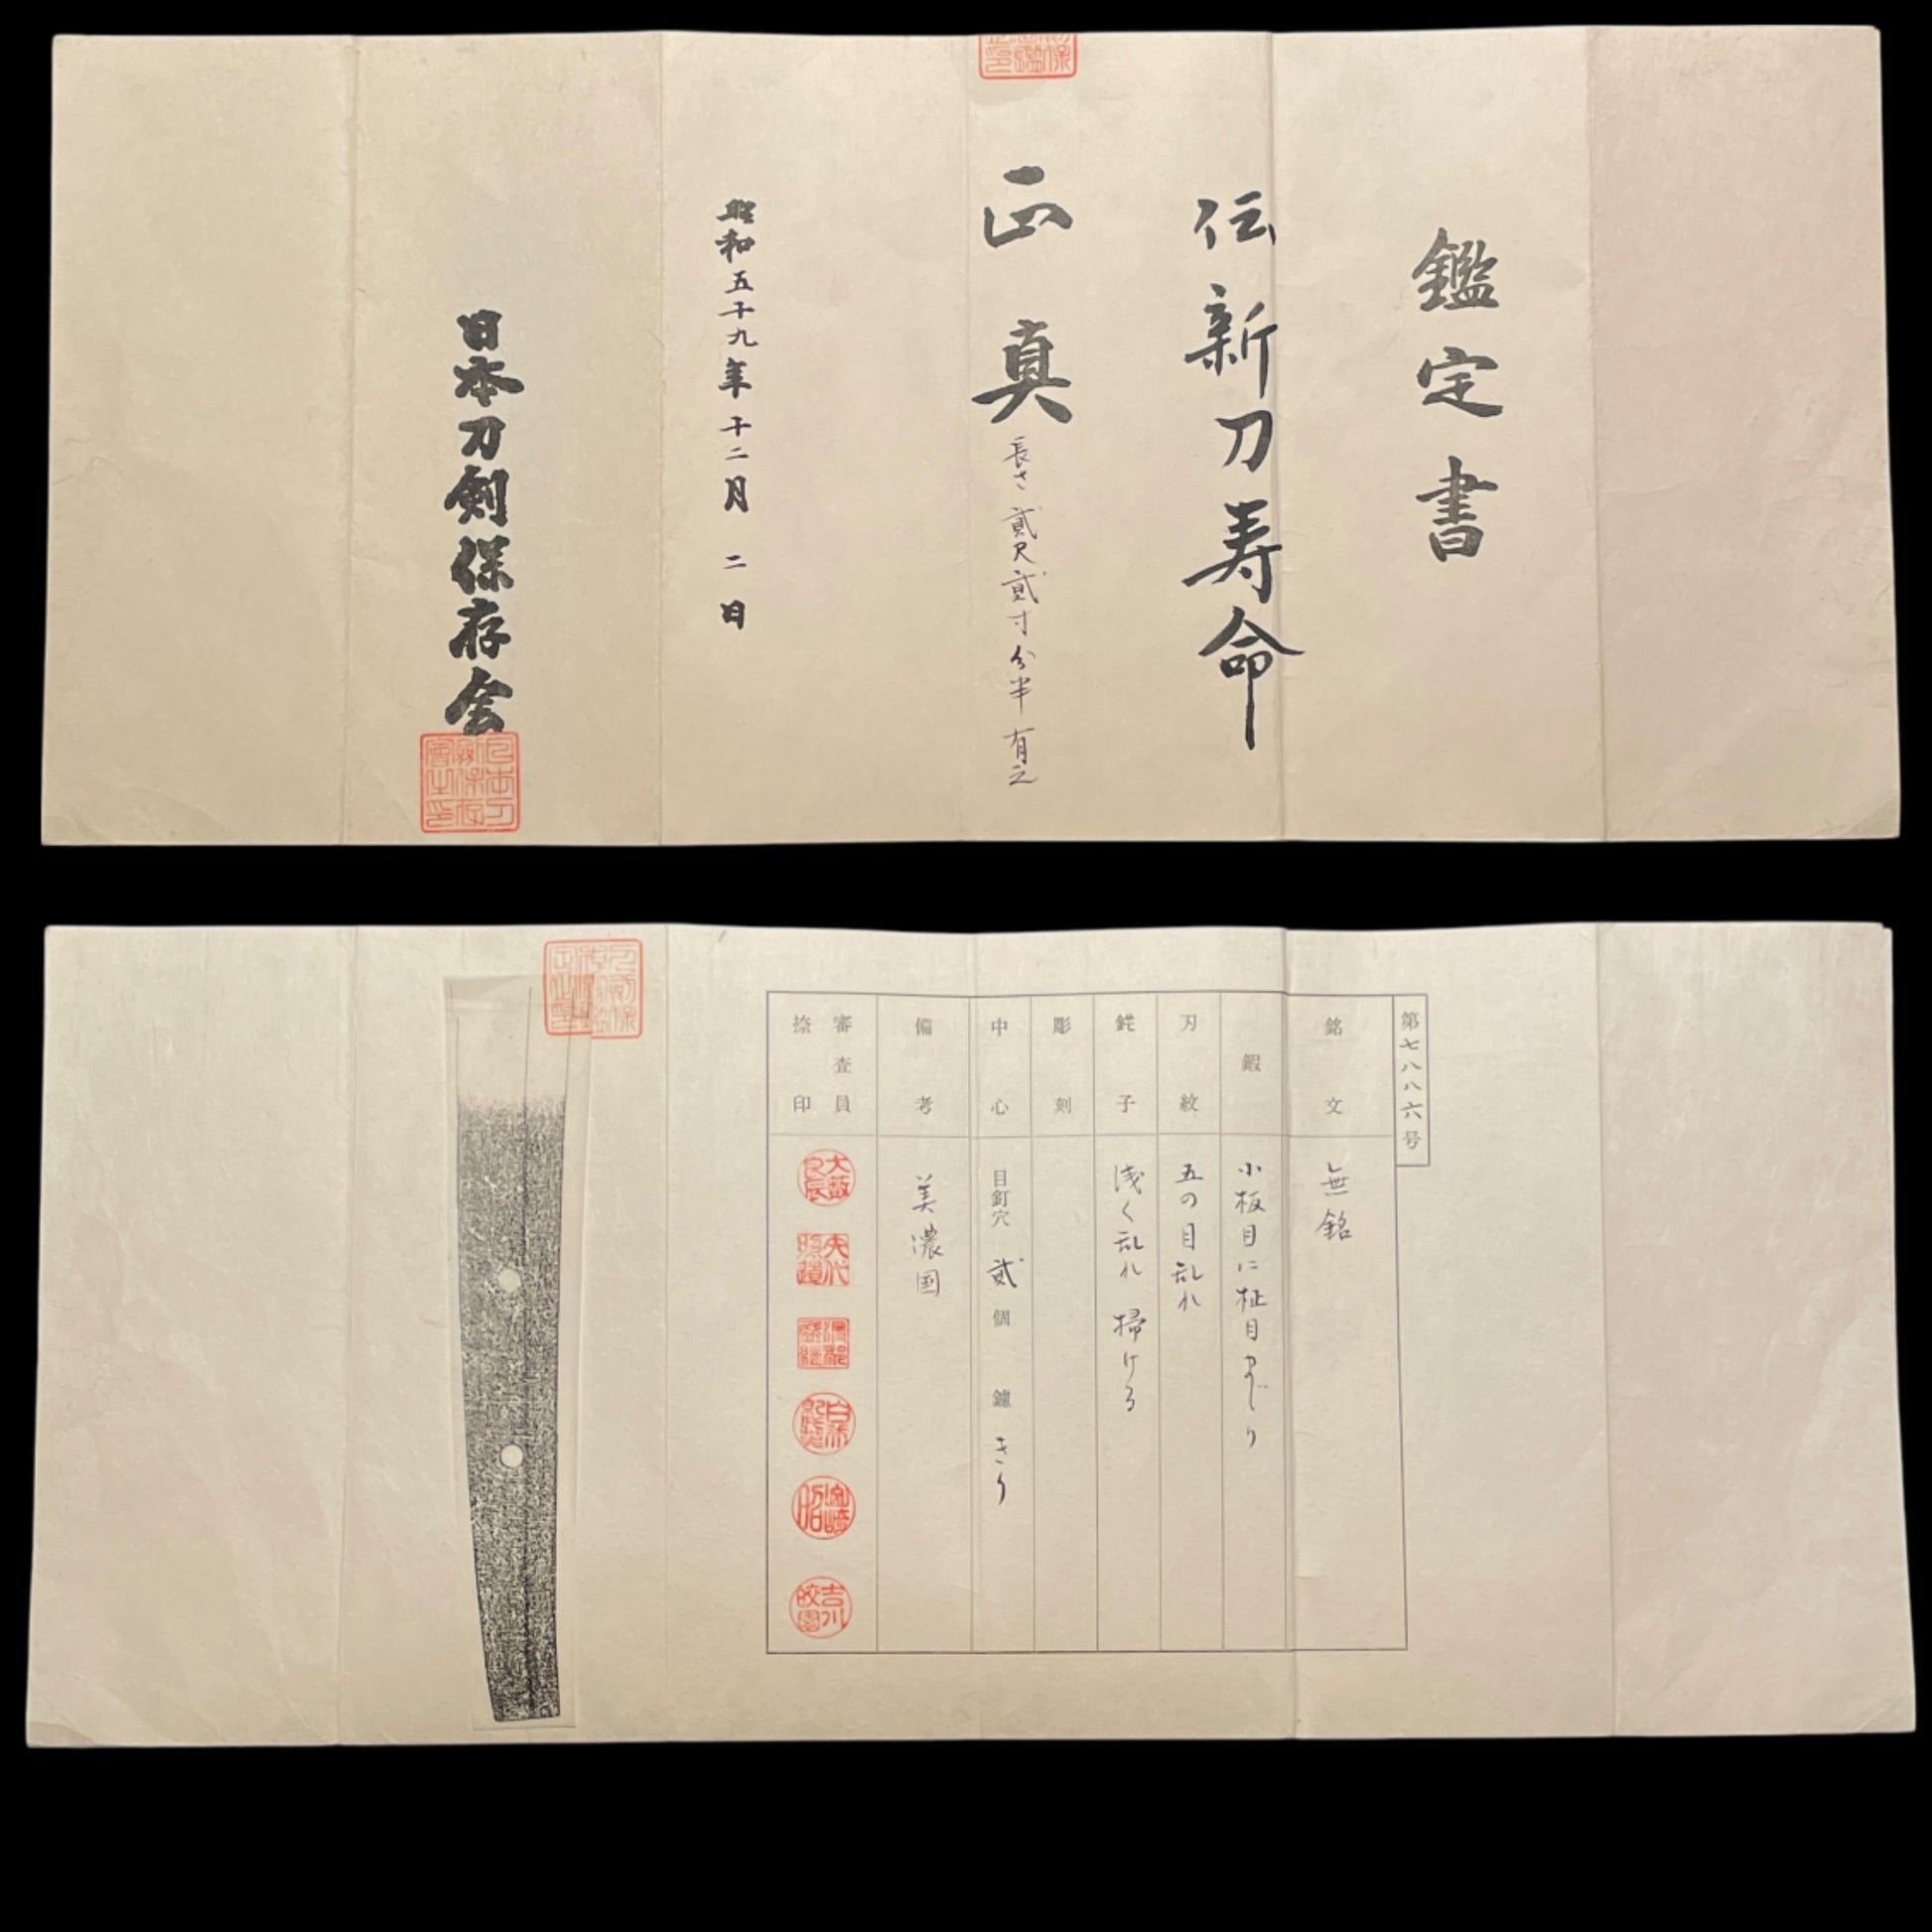 鑑定書
伝新刀寿命
正真
長さ貳尺貳寸分半有之
昭和五十九年十二月二日
日本刀剣保存会
第七八八六号
銘文
無銘
鍜
小板目に柾目まじり
刃紋
五の目乱れ
鋩子
浅く乱れ掃ける
彫刻
中心
目釘穴貳個 鑢きり
備考
美濃国
審査員
捺印